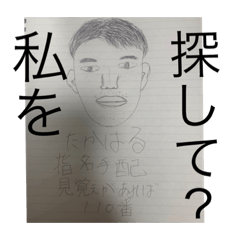 探して?
私を
たかはる
指名手配
見覚えがあれば
110番